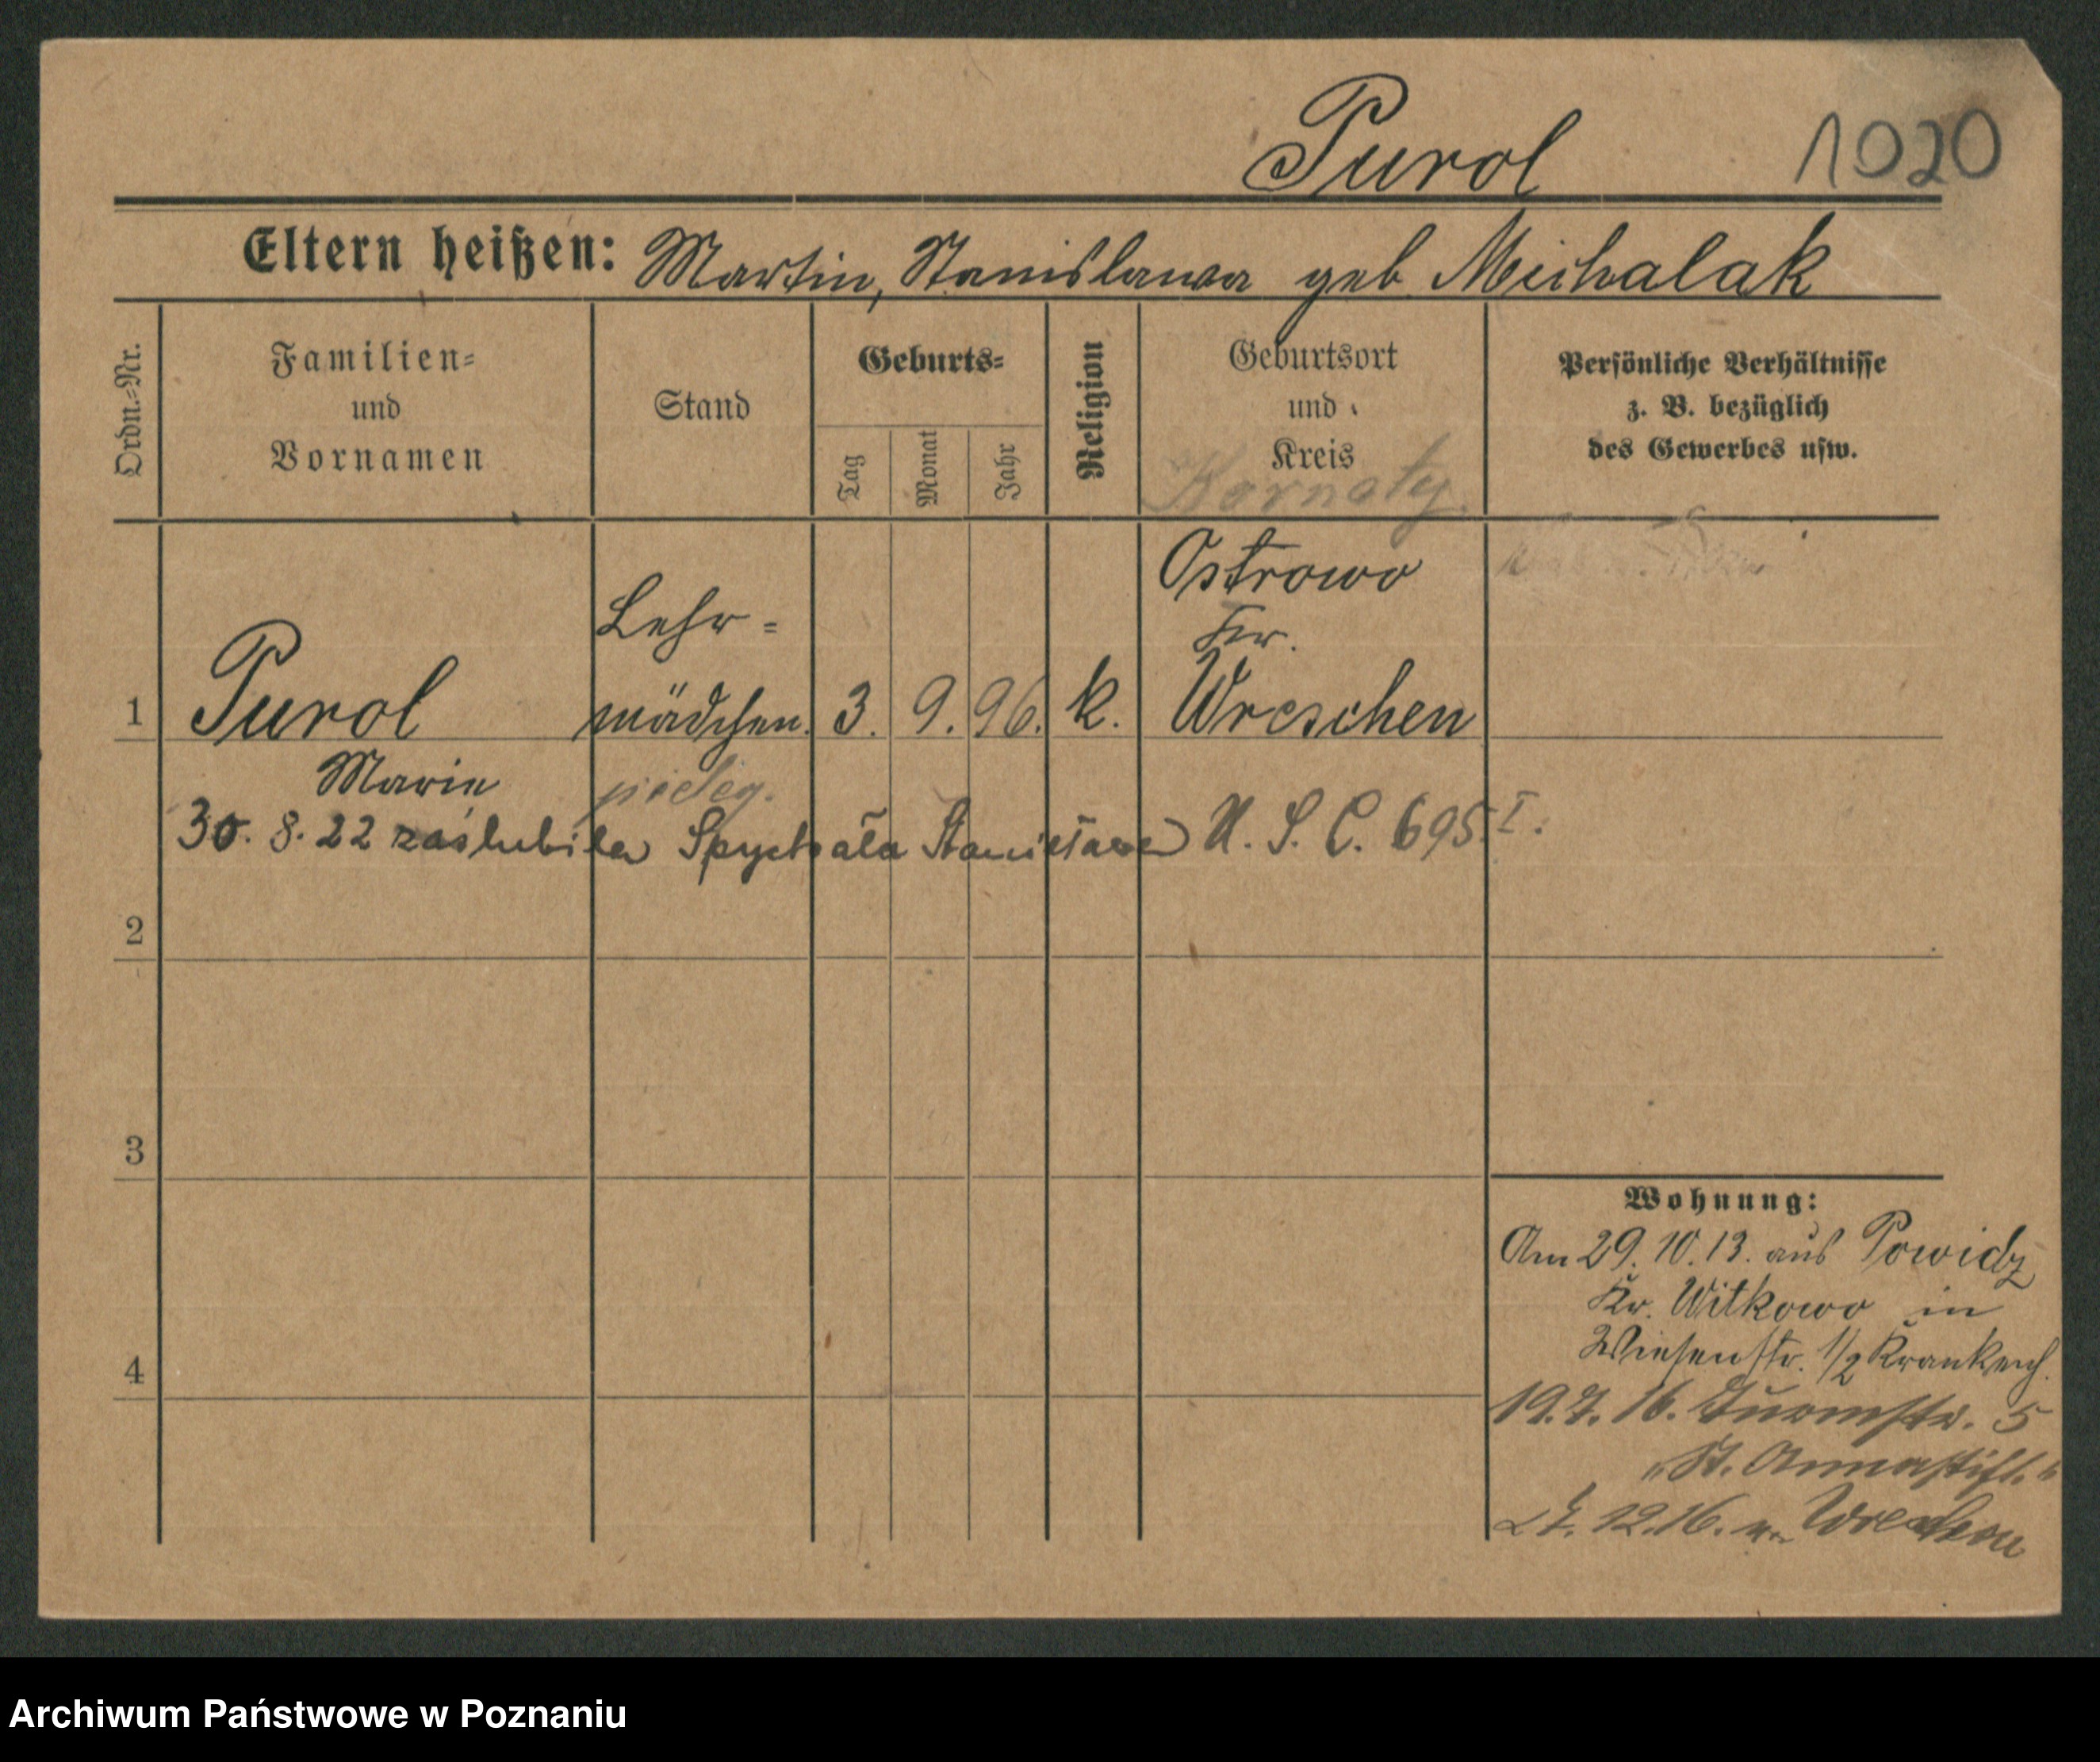 Purol 1020
Eltern heißen: Martin, Stanislawa geb. Michalak
Ordn.-Nr.
Familien-
und
Vornamen
Stand
Geburts-
Tag
Monat
Jahr
Religion
Geburtsort
und
Kreis
Kornaty
Persönliche Verhältnisse
z. B. bezüglich
des Gewerbes usw.
Ostrowo
Lehr-
Kr.
1 Purol mädchen. 3. 9. 96. k. Wreschen
Marie pielęg.
30. 8. 22 zaślubiła Spychała Stanisława U. S. C. 695 I.
2
3
4
Wohnung:
Am 29. 10. 13. aus Powidz
Kr. Witkowo in
Wiesenstr. 1/2 Krankenh.
19. 7. 16. Turmstr. 5
"St. Annastift."
7. 12. 16. n. Wreschen
Archiwum Państwowe w Poznaniu